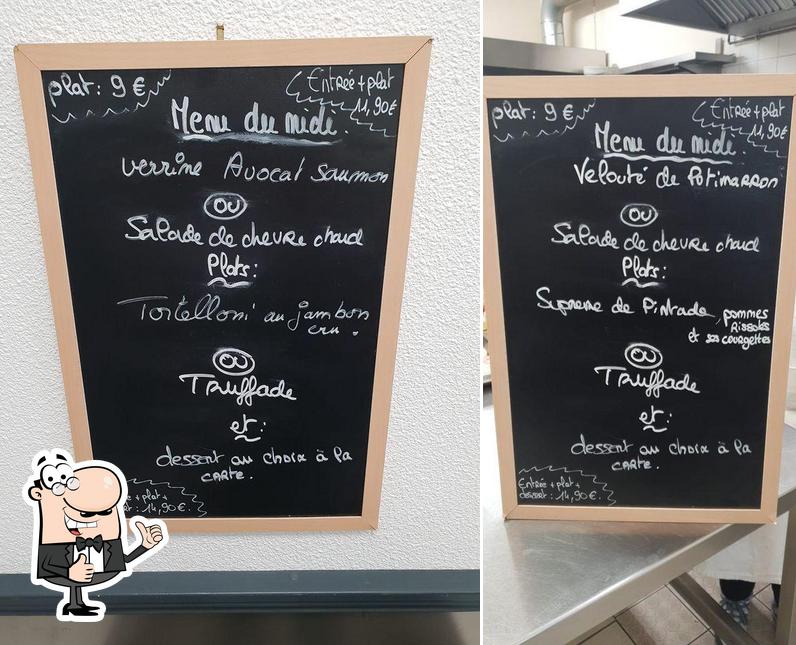 plat: 9 €
Entrée + plat
11,90€
Menu du midi.
verrine Avocat Saumon
ou
Salade de chèvre chaud
Plats:
Tortelloni au jambon
cru.
ou
Truffade
et:
dessert au choix à la
CARTE.
e + plat +
t: 14,90€.
plat: 9 €
Entrée + plat
11,90€
Menu du midi.
Velouté de Potimarron
ou
Salade de chèvre chaud
Plats:
Supreme de Pintade, pommes
Rissolés
et ses courgettes
ou
Truffade
et:
dessert au choix à la
CARTE.
Entrée + plat +
dessert: 14,90€.